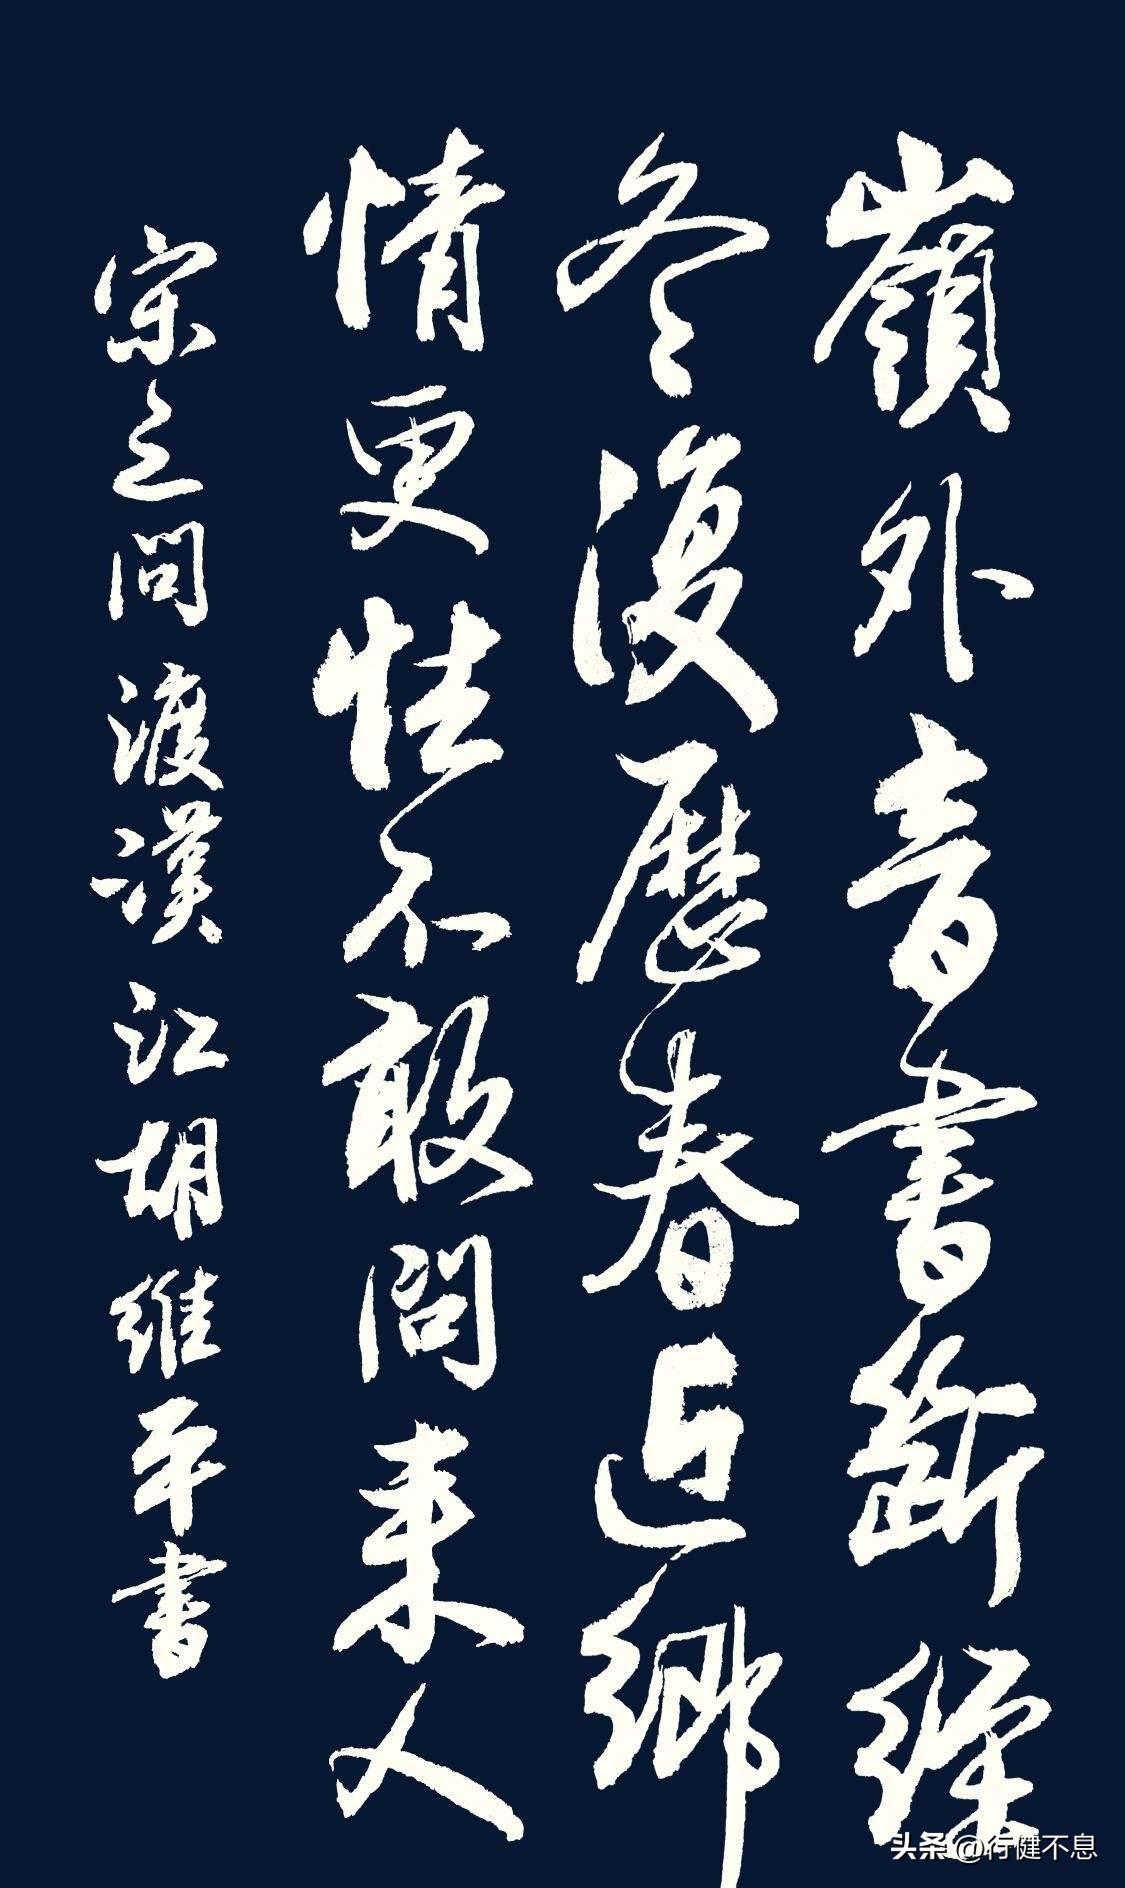 嶺外音書斷經
冬復歷春近鄉
情更怯不敢問来人
宋之問渡漢江胡維平書
头条@行健不息